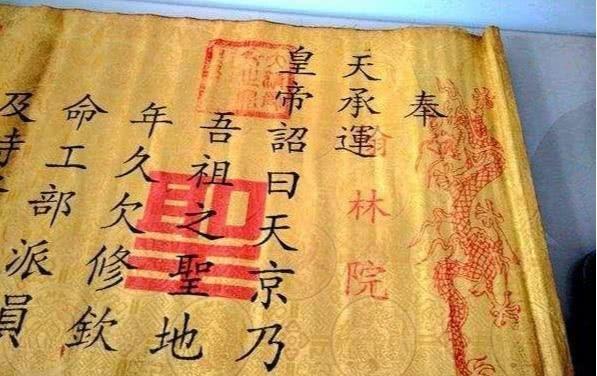 奉
天承運
翰林院
皇帝詔曰天京乃
吾祖之聖地
年久欠修欽
命工部派員
及